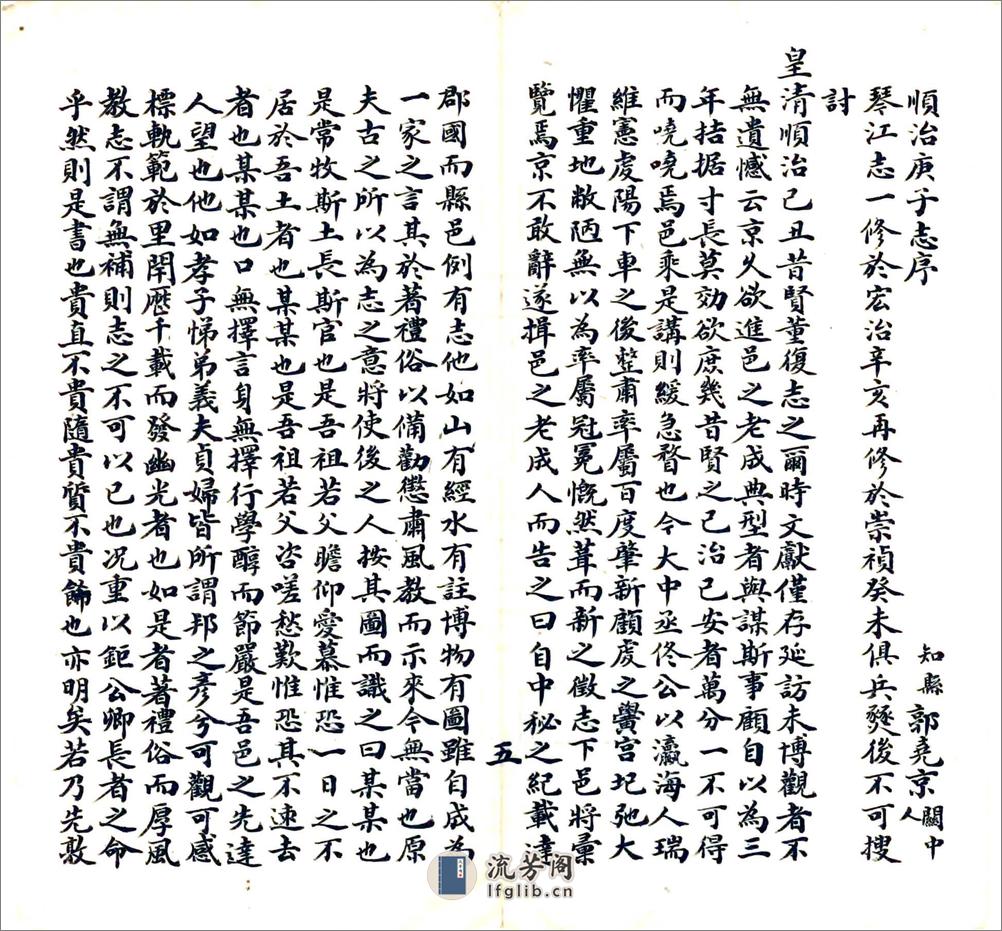 順治庚子志序
知縣郭堯京關中人
琴江志一修於宏治辛亥再修於崇禎癸未俱兵燹後不可搜
討
皇清順治己丑昔賢董復志之爾時文獻僅存延訪未博觀者不
無遺憾云京久欲進邑之老成典型者與謀斯事顧自以為三
年拮据寸長莫効欲庶幾昔賢之已治已安者萬分一不可得
而嘵嘵焉邑乘是講則緩急瞀也今大中丞佟公以瀛海人瑞
維憲虔陽下車之後整肅率屬百度肇新顧虔之黌宮圮弛大
懼重地敝陋無以為率屬冠冕慨然葺而新之徵志下邑將彙
覽焉京不敢辭遂揖邑之老成人而告之曰自中秘之紀載達
五
郡國而縣邑例有志他如山有經水有註博物有圖雖自成為
一家之言其於著禮俗以備勸懲肅風教而示來今無當也原
夫古之所以為志之意將使後之人按其圖而識之曰某某也
是常牧斯土長斯官也是吾祖若父瞻仰愛慕惟恐一日之不
居於吾土者也某某也是吾祖若父咨嗟愁歎惟恐其不速去
者也某某也口無擇言身無擇行學醇而節嚴是吾邑之先達
人望也他如孝子悌弟義夫貞婦皆所謂邦之彥兮可觀可感
標軌範於里閈歷千載而發幽光者也如是者著禮俗而厚風
教志不謂無補則志之不可以已也况重以鉅公卿長者之命
乎然則是書也貴直不貴隨貴質不貴餙也亦明矣若乃先敦
流芳阁
lfglib.cn